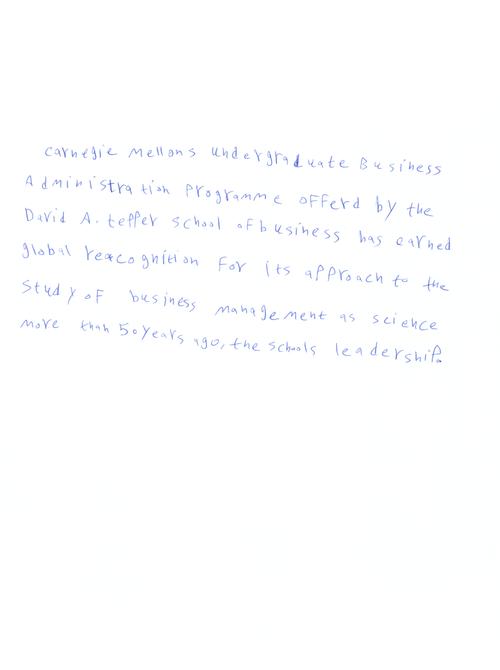 Carnegie Mellons undergraduate Business
Administration Programme offerd by the
David A. tepper school of business has earned
global reacognition for its approach to the
study of business management as science
more than 50 years ago, the schools leadership.